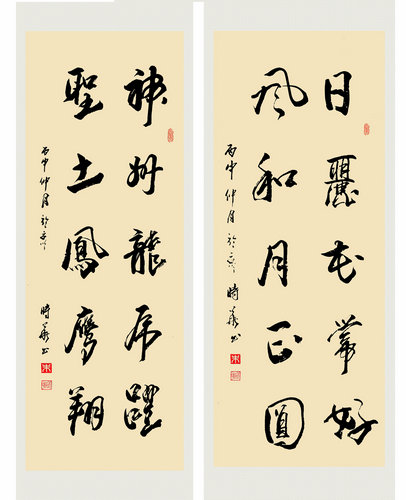 日麗花常好
风和月正圓
丙申仲月於
時书
神州龍虎躍
聖土鳳鷹翔
丙申仲月於
時书